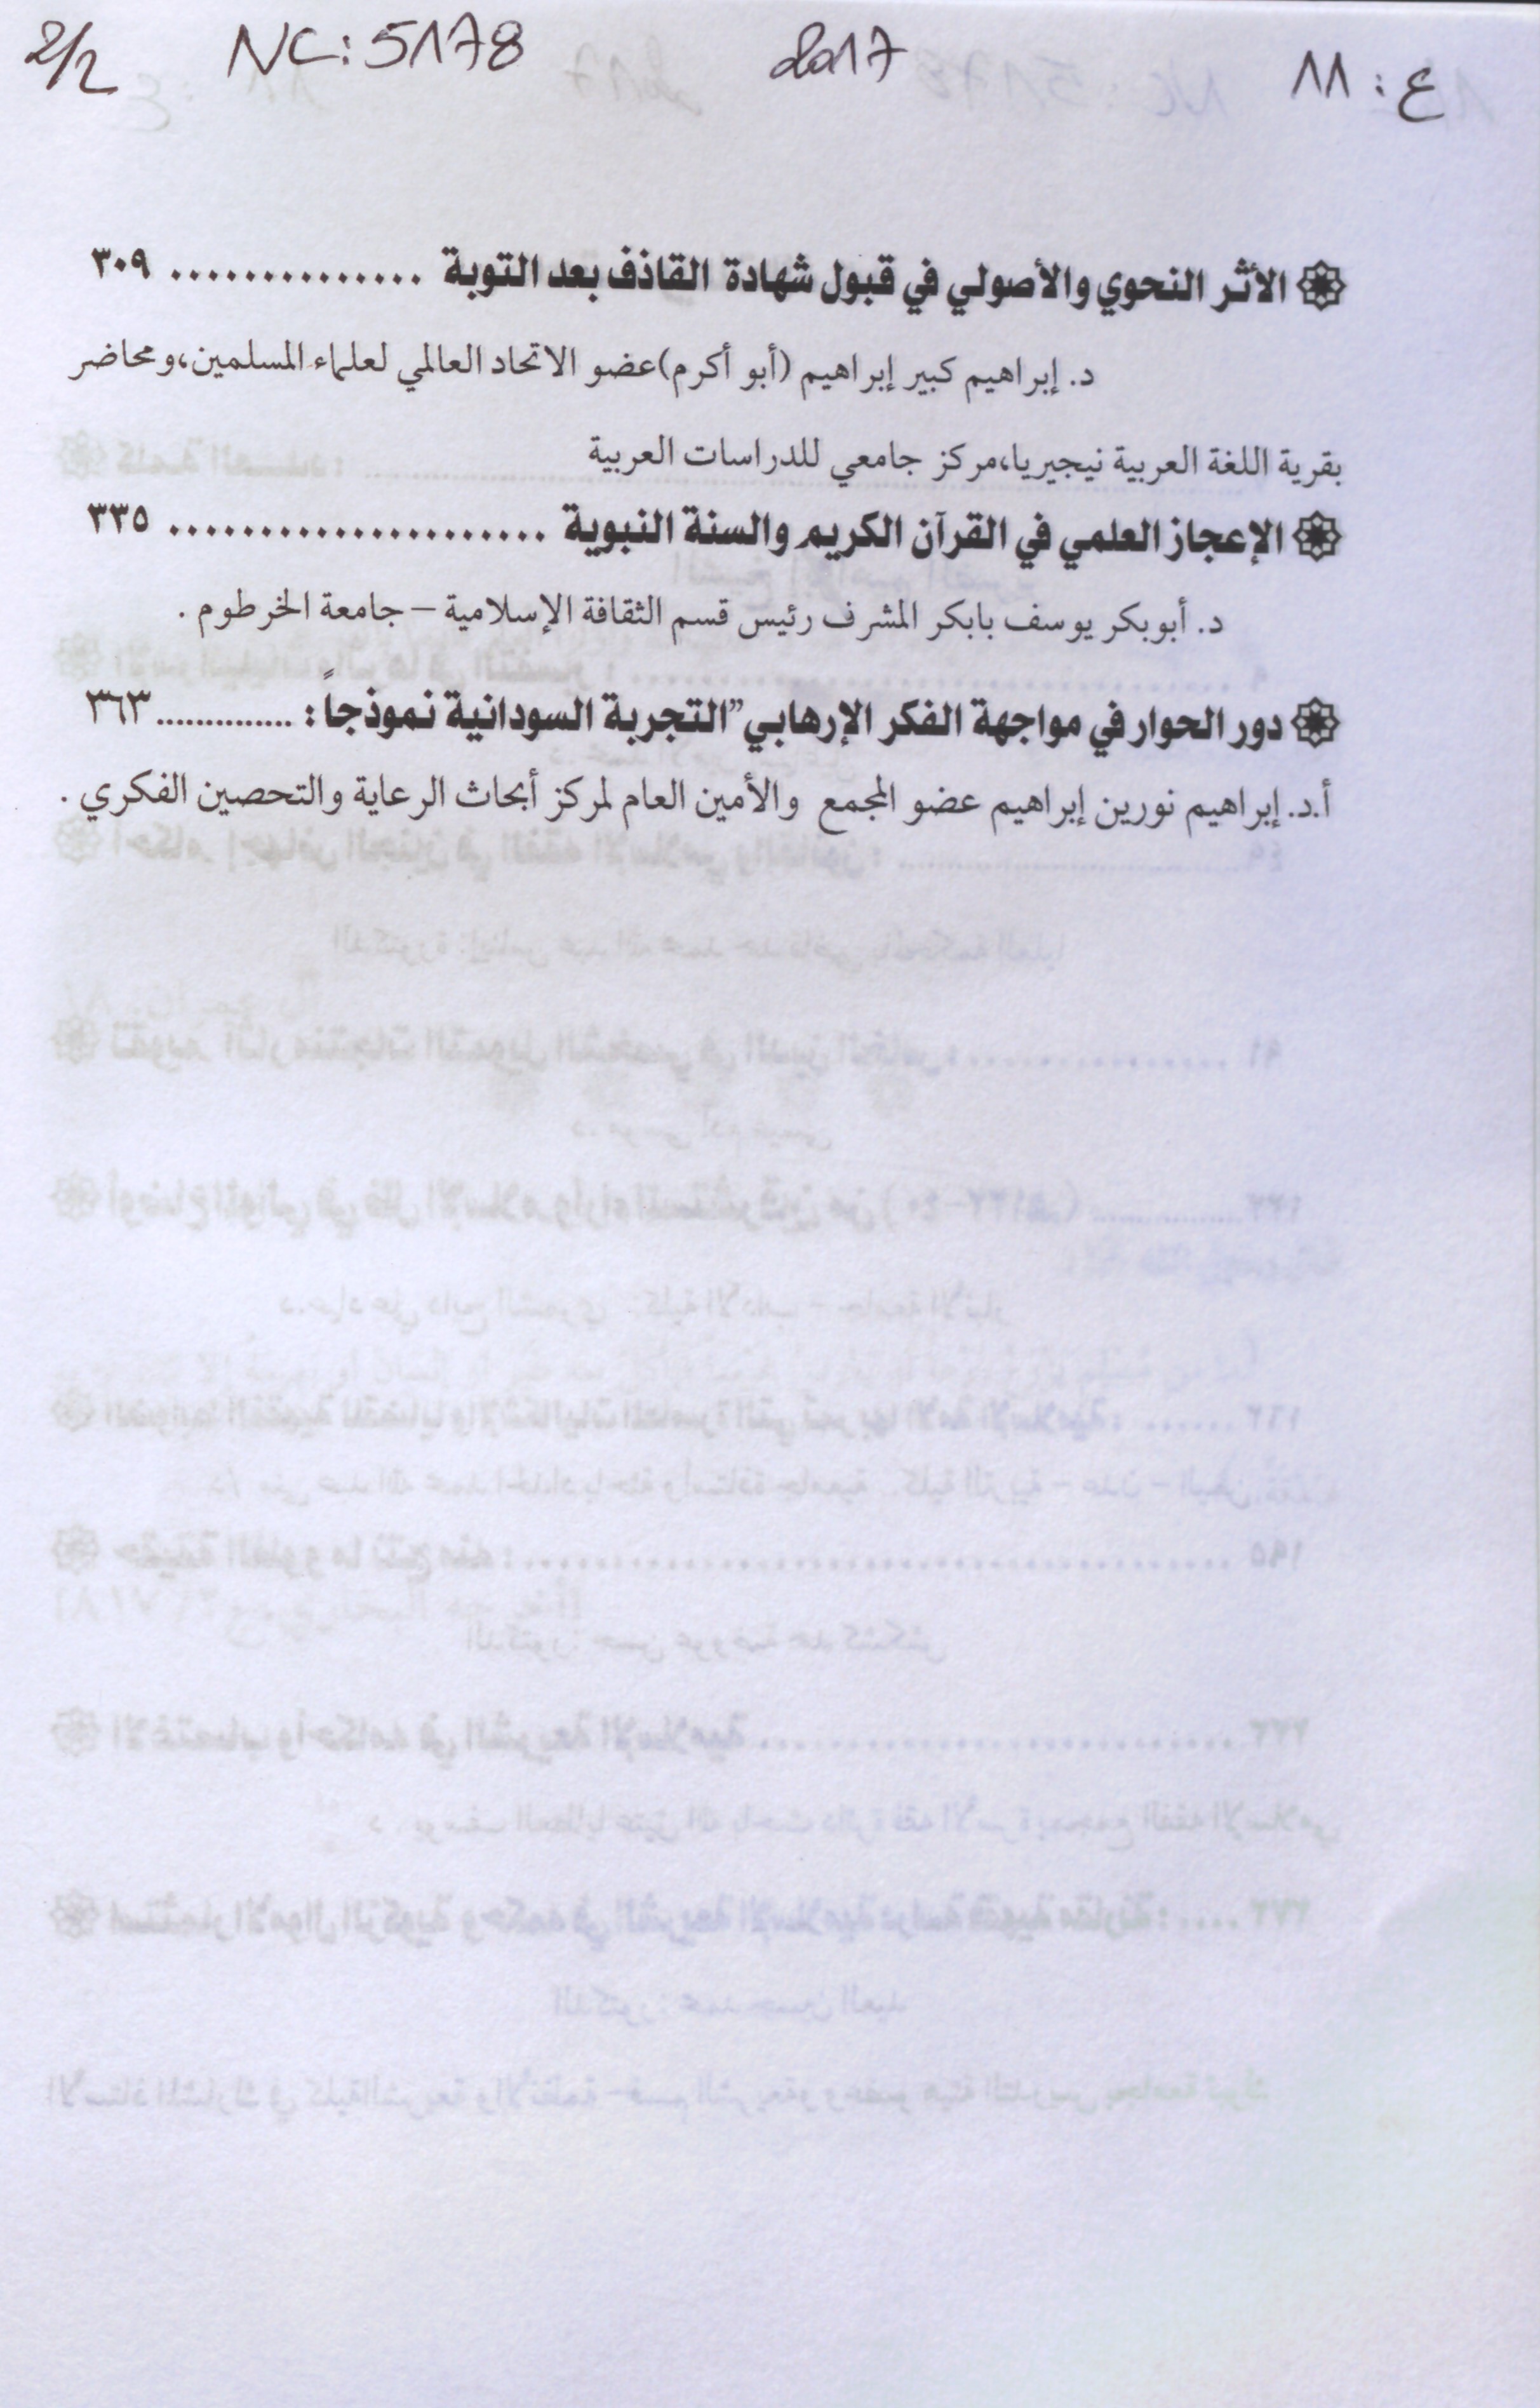 2/2 NC: 5178 2017 ع: ١٨
الأثر النحوي والأصولي في قبول شهادة القاذف بعد التوبة .............. ٣٠٩
د. إبراهيم كبير إبراهيم (أبو أكرم)عضو الاتحاد العالمي لعلماء المسلمين،ومحاضر
بقرية اللغة العربية نيجيريا،مركز جامعي للدراسات العربية
الإعجاز العلمي في القرآن الكريم والسنة النبوية ..................... ٣٣٥
د. أبوبكر يوسف بابكر المشرف رئيس قسم الثقافة الإسلامية – جامعة الخرطوم .
دور الحوار في مواجهة الفكر الإرهابي”التجربة السودانية نموذجاً : .............. ٣٦٣
أ.د. إبراهيم نورين إبراهيم عضو المجمع والأمين العام لمركز أبحاث الرعاية والتحصين الفكري .